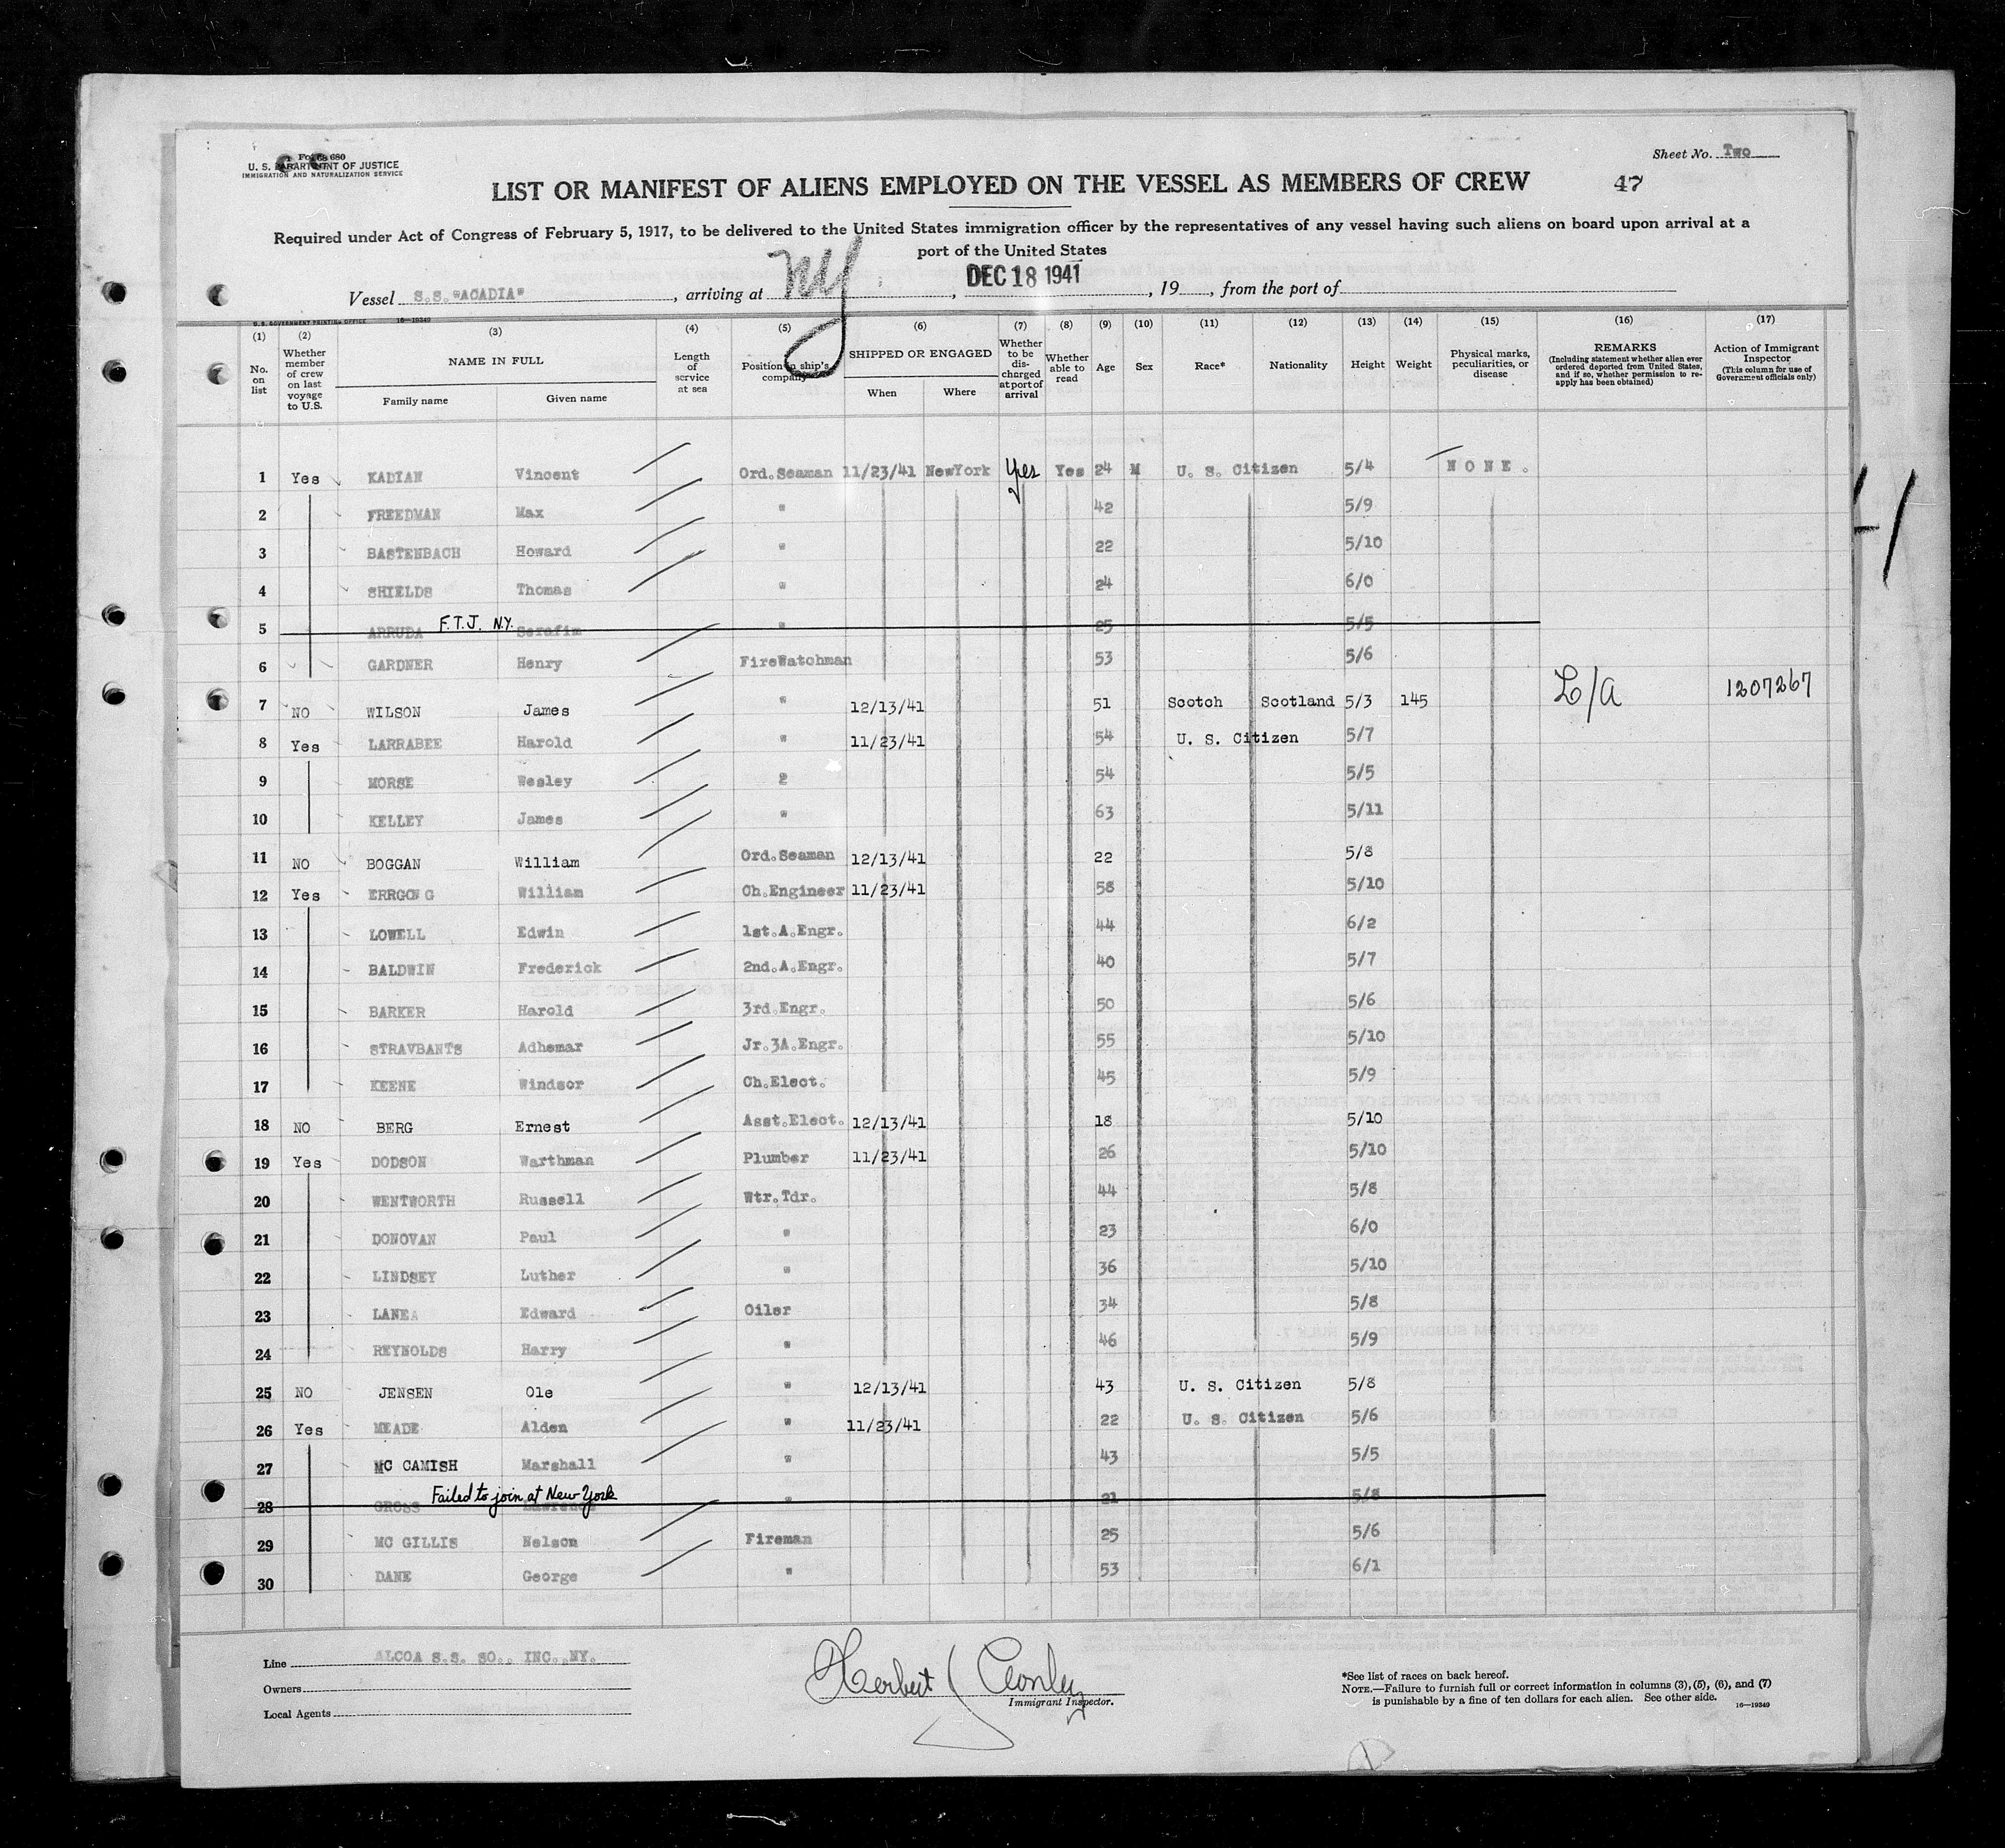 Form 680
U. S. DEPARTMENT OF JUSTICE
IMMIGRATION AND NATURALIZATION SERVICE
Sheet No. Two
LIST OR MANIFEST OF ALIENS EMPLOYED ON THE VESSEL AS MEMBERS OF CREW 47
Required under Act of Congress of February 5, 1917, to be delivered to the United States immigration officer by the representatives of any vessel having such aliens on board upon arrival at a
port of the United States
Vessel S.S."ACADIA" , arriving at NY , DEC 18 1941 , 19 , from the port of
U. S. GOVERNMENT PRINTING OFFICE 16—19349
(1) (2) (3) (4) (5) (6) (7) (8) (9) (10) (11) (12) (13) (14) (15) (16) (17)
No. on list
Whether member of crew on last voyage to U.S.
NAME IN FULL
Family name Given name
Length of service at sea
Position in ship's company
SHIPPED OR ENGAGED
When Where
Whether to be discharged at port of arrival
Whether able to read
Age Sex Race* Nationality Height Weight
Physical marks, peculiarities, or disease
REMARKS
(Including statement whether alien ever ordered deported from United States, and if so, whether permission to reapply has been obtained)
Action of Immigrant Inspector
(This column for use of Government officials only)
1 Yes KADIAN Vincent Ord.Seaman 11/23/41 NewYork Yes Yes 24 M U. S. Citizen 5/4 NONE.
2 FREEDMAN Max " 42 5/9
3 BASTENBACH Howard " 22 5/10
4 SHIELDS Thomas " 24 6/0
5 ARRUDA F.T.J. N.Y. Serafim " 25 5/5
6 GARDNER Henry FireWatchman 53 5/6
7 NO WILSON James " 12/13/41 51 Scotch Scotland 5/3 145 L/A 1207267
8 Yes LARRABEE Harold " 11/23/41 54 U. S. Citizen 5/7
9 MORSE Wesley 2 54 5/5
10 KELLEY James " 63 5/11
11 NO BOGGAN William Ord.Seaman 12/13/41 22 5/8
12 Yes ERRGONG William Ch.Engineer 11/23/41 58 5/10
13 LOWELL Edwin 1st.A.Engr. 44 6/2
14 BALDWIN Frederick 2nd.A.Engr. 40 5/7
15 BARKER Harold 3rd.Engr. 50 5/6
16 STRAVBANTS Adhemar Jr.3A.Engr. 55 5/10
17 KEENE Windsor Ch.Elect. 45 5/9
18 NO BERG Ernest Asst.Elect. 12/13/41 18 5/10
19 Yes DODSON Warthman Plumber 11/23/41 26 5/10
20 WENTWORTH Russell Wtr.Tdr. 44 5/8
21 DONOVAN Paul " 23 6/0
22 LINDSEY Luther " 36 5/10
23 LANEA Edward Oiler 34 5/8
24 REYNOLDS Harry " 46 5/9
25 NO JENSEN Ole " 12/13/41 43 U. S. Citizen 5/8
26 Yes MEADE Alden " 11/23/41 22 U. S. Citizen 5/6
27 MC CAMISH Marshall " 43 5/5
28 GROSS Failed to join at New York Lawrence " 21 5/8
29 MC GILLIS Nelson Fireman 25 5/6
30 DANE George " 53 6/1
Line ALCOA S.S. SO., INC., NY.
Owners
Local Agents
Herbert J Conley
Immigrant Inspector.
*See list of races on back hereof.
NOTE.—Failure to furnish full or correct information in columns (3), (5), (6), and (7)
is punishable by a fine of ten dollars for each alien. See other side. 16—19349